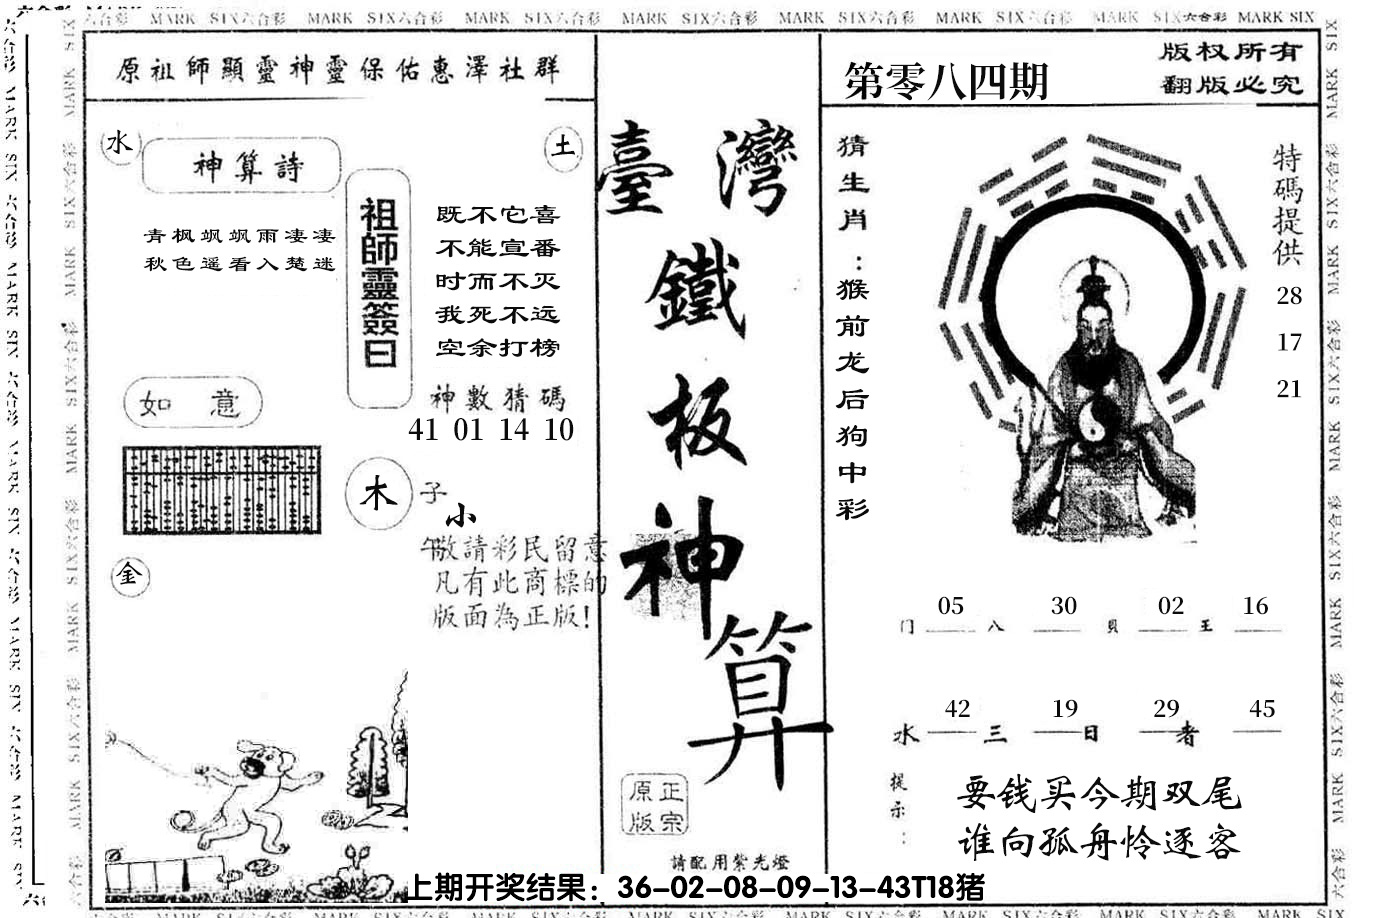 MARK SIX六合彩 MARK SIX六合彩 MARK SIX六合彩 MARK SIX六合彩 MARK SIX六合彩 MARK SIX六合彩 MARK SIX六合彩 MARK SIX
原祖師顯靈神靈保佑惠澤社群
水
神算詩
土
青枫飒飒雨凄凄
秋色遥看入楚迷
祖師靈簽曰
既不它喜
不能宣番
时而不灭
我死不远
空余打榜
如意
神數猜碼
41 01 14 10
木
子
小
午
敬請彩民留意
凡有此商標的
版面為正版!
金
臺灣
鐵
板
神
算
正宗
原版
請配用紫光燈
第零八四期
版权所有
翻版必究
猜生肖:猴前龙后狗中彩
特碼提供
28
17
21
05 30 02 16
门 八 貝 王
42 19 29 45
水 三 日 者
提示:
要钱买今期双尾
谁向孤舟怜逐客
上期开奖结果：36-02-08-09-13-43T18猪